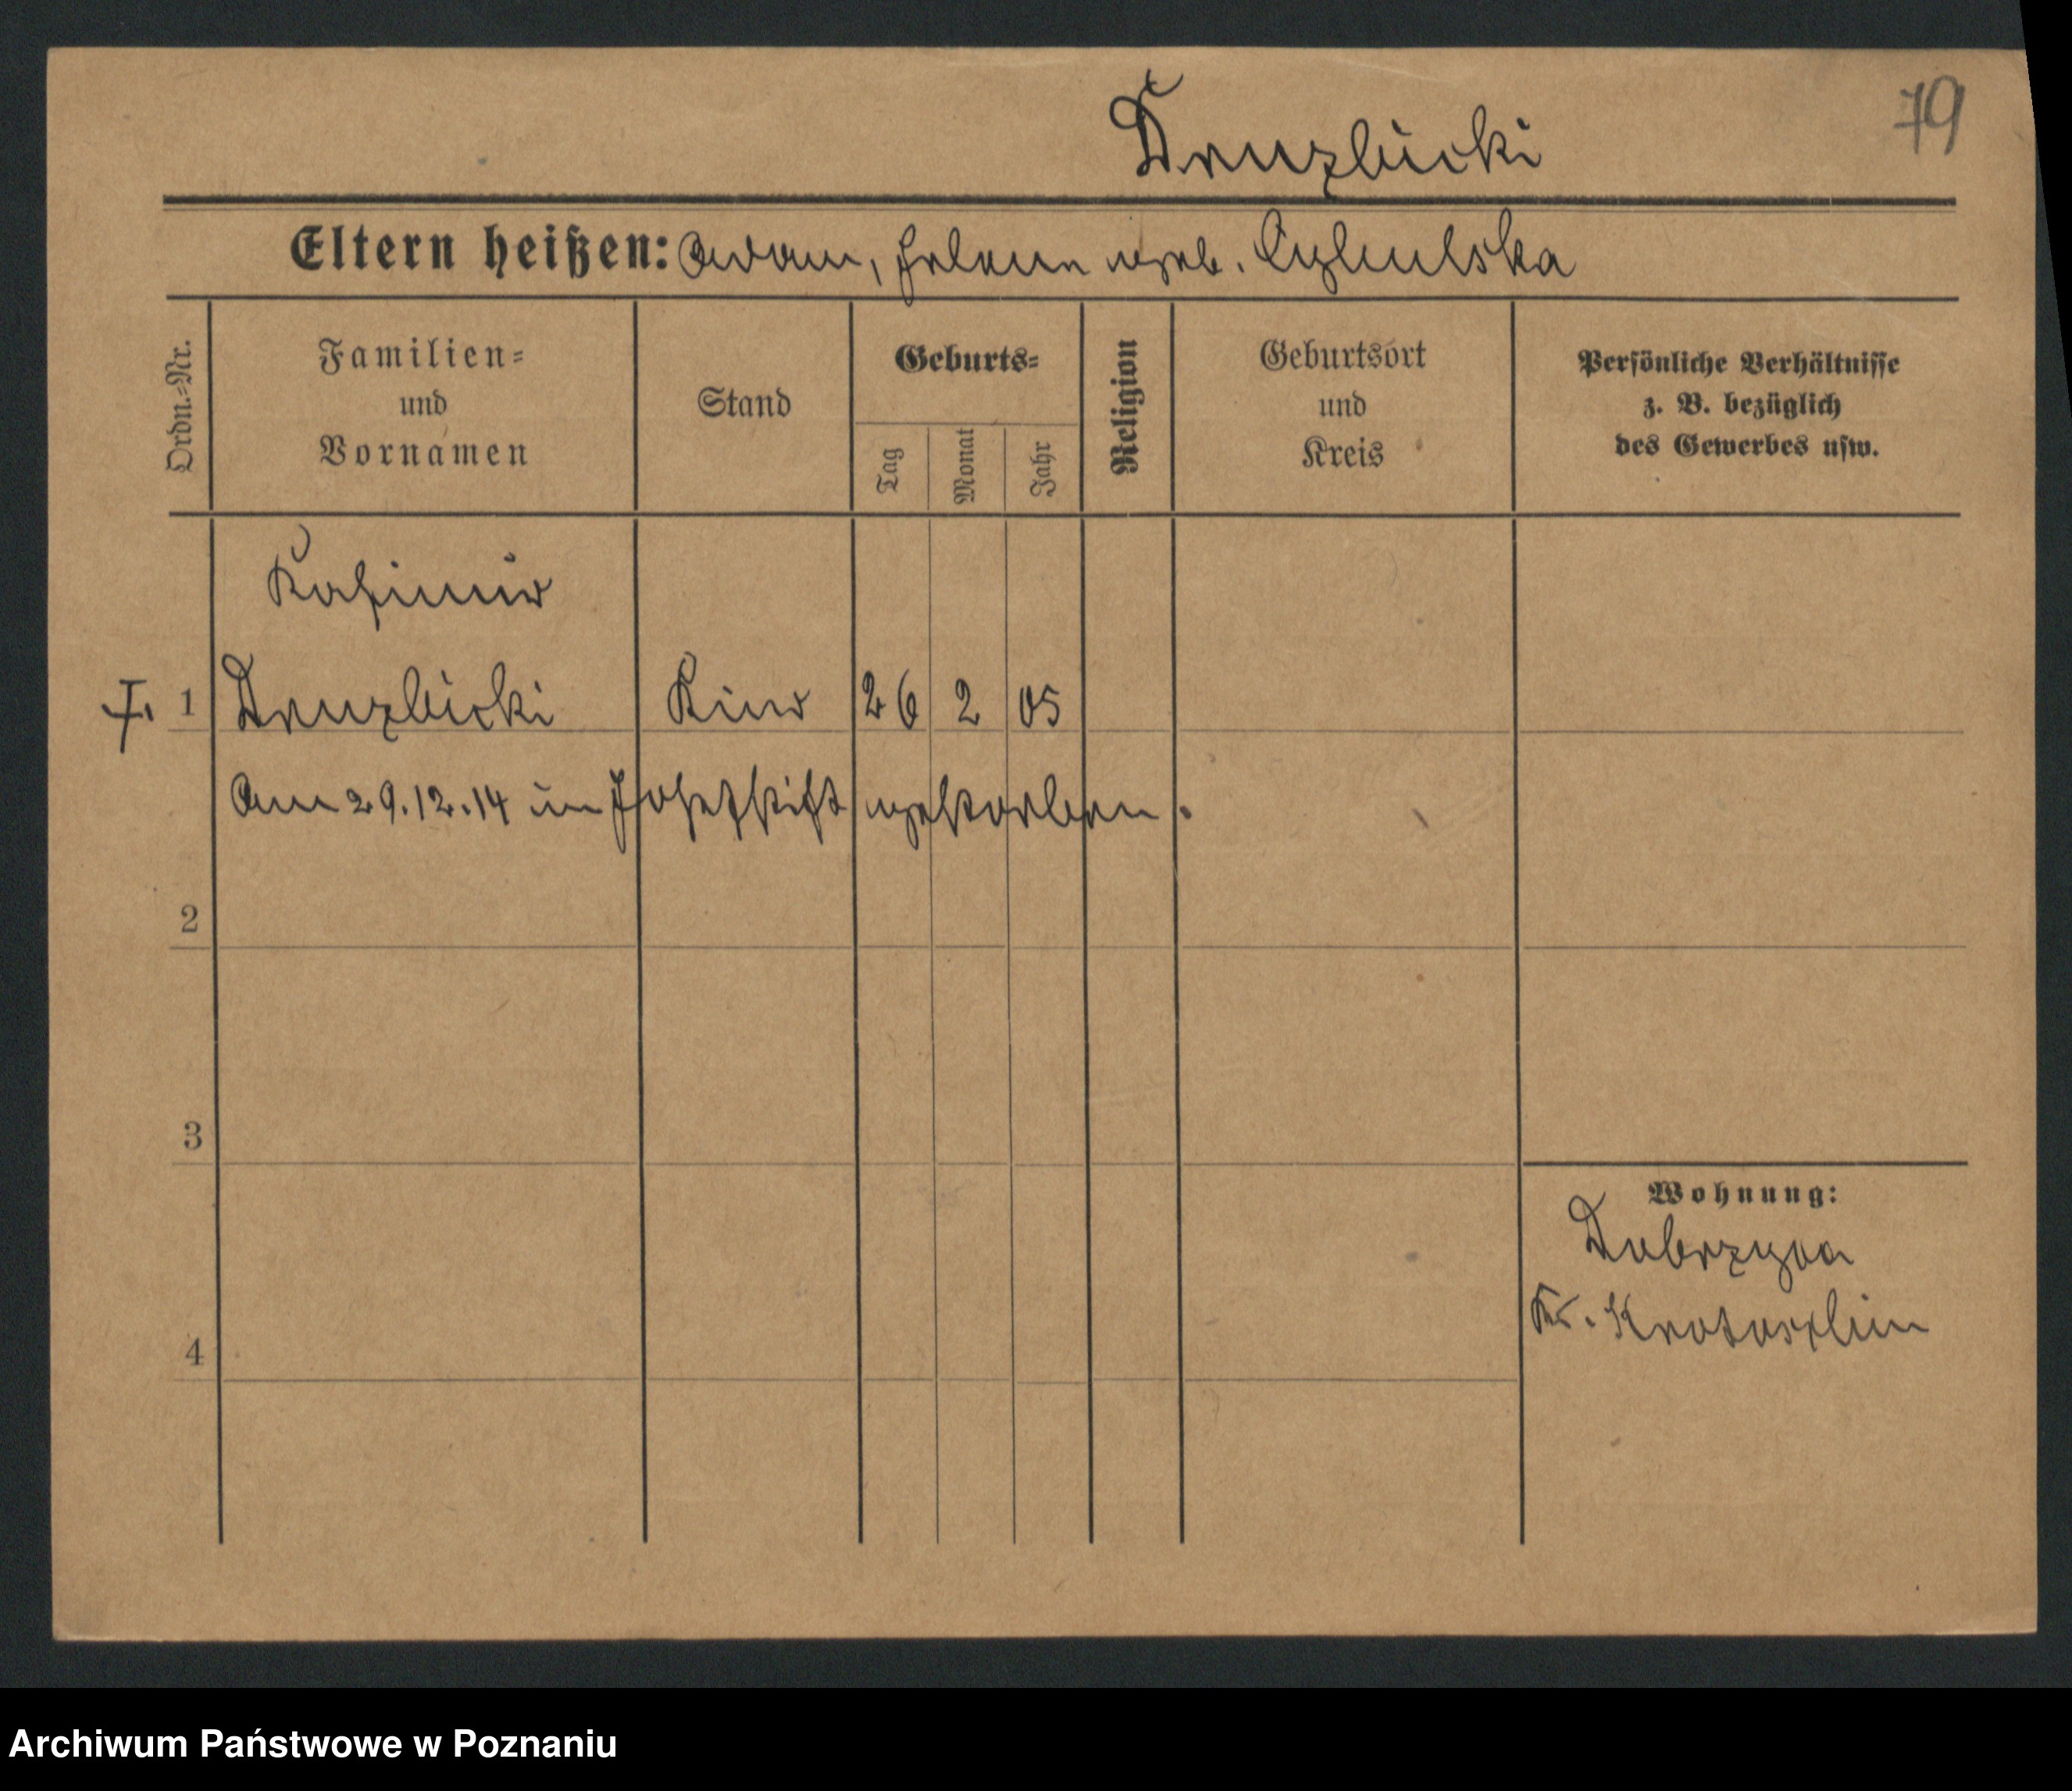 79
Druzbicki
Eltern heißen: Adam, Helene geb. Cybulska
Ordn.=Nr.
Familien=
und
Vornamen
Stand
Geburts=
Tag
Monat
Jahr
Religion
Geburtsort
und
Kreis
Persönliche Verhältnisse
z. B. bezüglich
des Gewerbes usw.
Kasimir
†. 1 Druzbicki Kind 26 2 05
Am 29.12.14 im Josefstift gestorben.
2
3
Wohnung:
Dobrzyca
Kr. Krotoschin
4
Archiwum Państwowe w Poznaniu